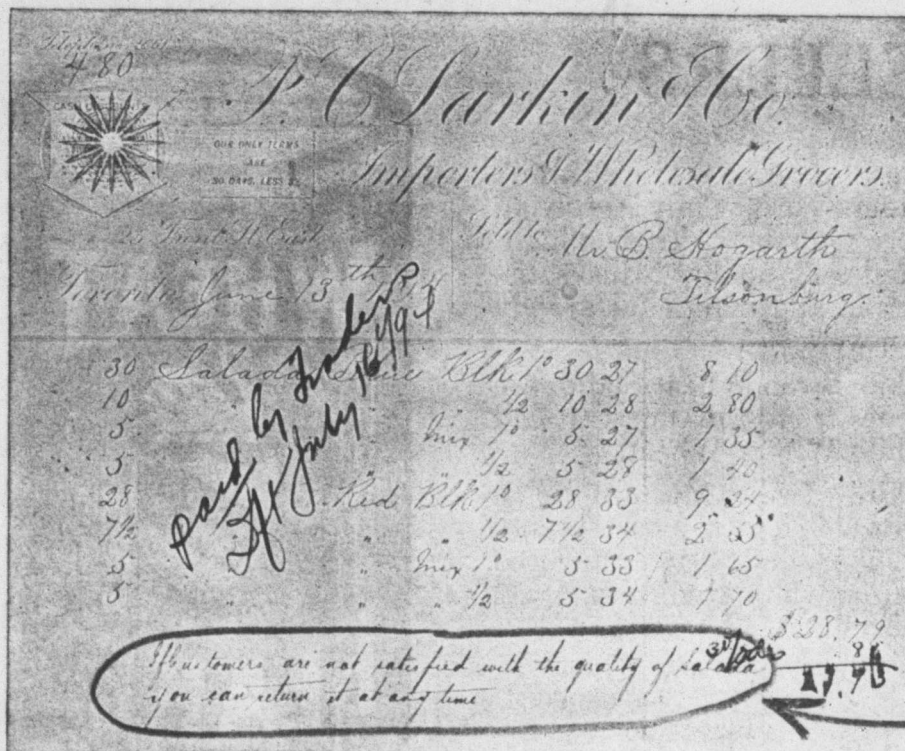 480
P. C. Larkin & Co.
OUR ONLY TERMS
ARE
30 DAYS, LESS 3%
Importers & Wholesale Grocers
25 Front St. East
Sold to Mr B. Hogarth
Toronto June 13th
Tilsonburg
paid by Trader
July 16/94
30 Salada Blk 1º 30 27 8 10
10 " " 1/2 10 28 2 80
5 " Mix 1º 5 27 1 35
5 " " 1/2 5 28 1 40
28 Red Blk 1º 28 33 9 24
7 1/2 " " 1/2 7 1/2 34 2 55
5 " " Mix 1º 5 33 1 65
5 " " " 1/2 5 34 1 70
$28.79
If customers are not satisfied with the quality of Salada
you can return it at any time